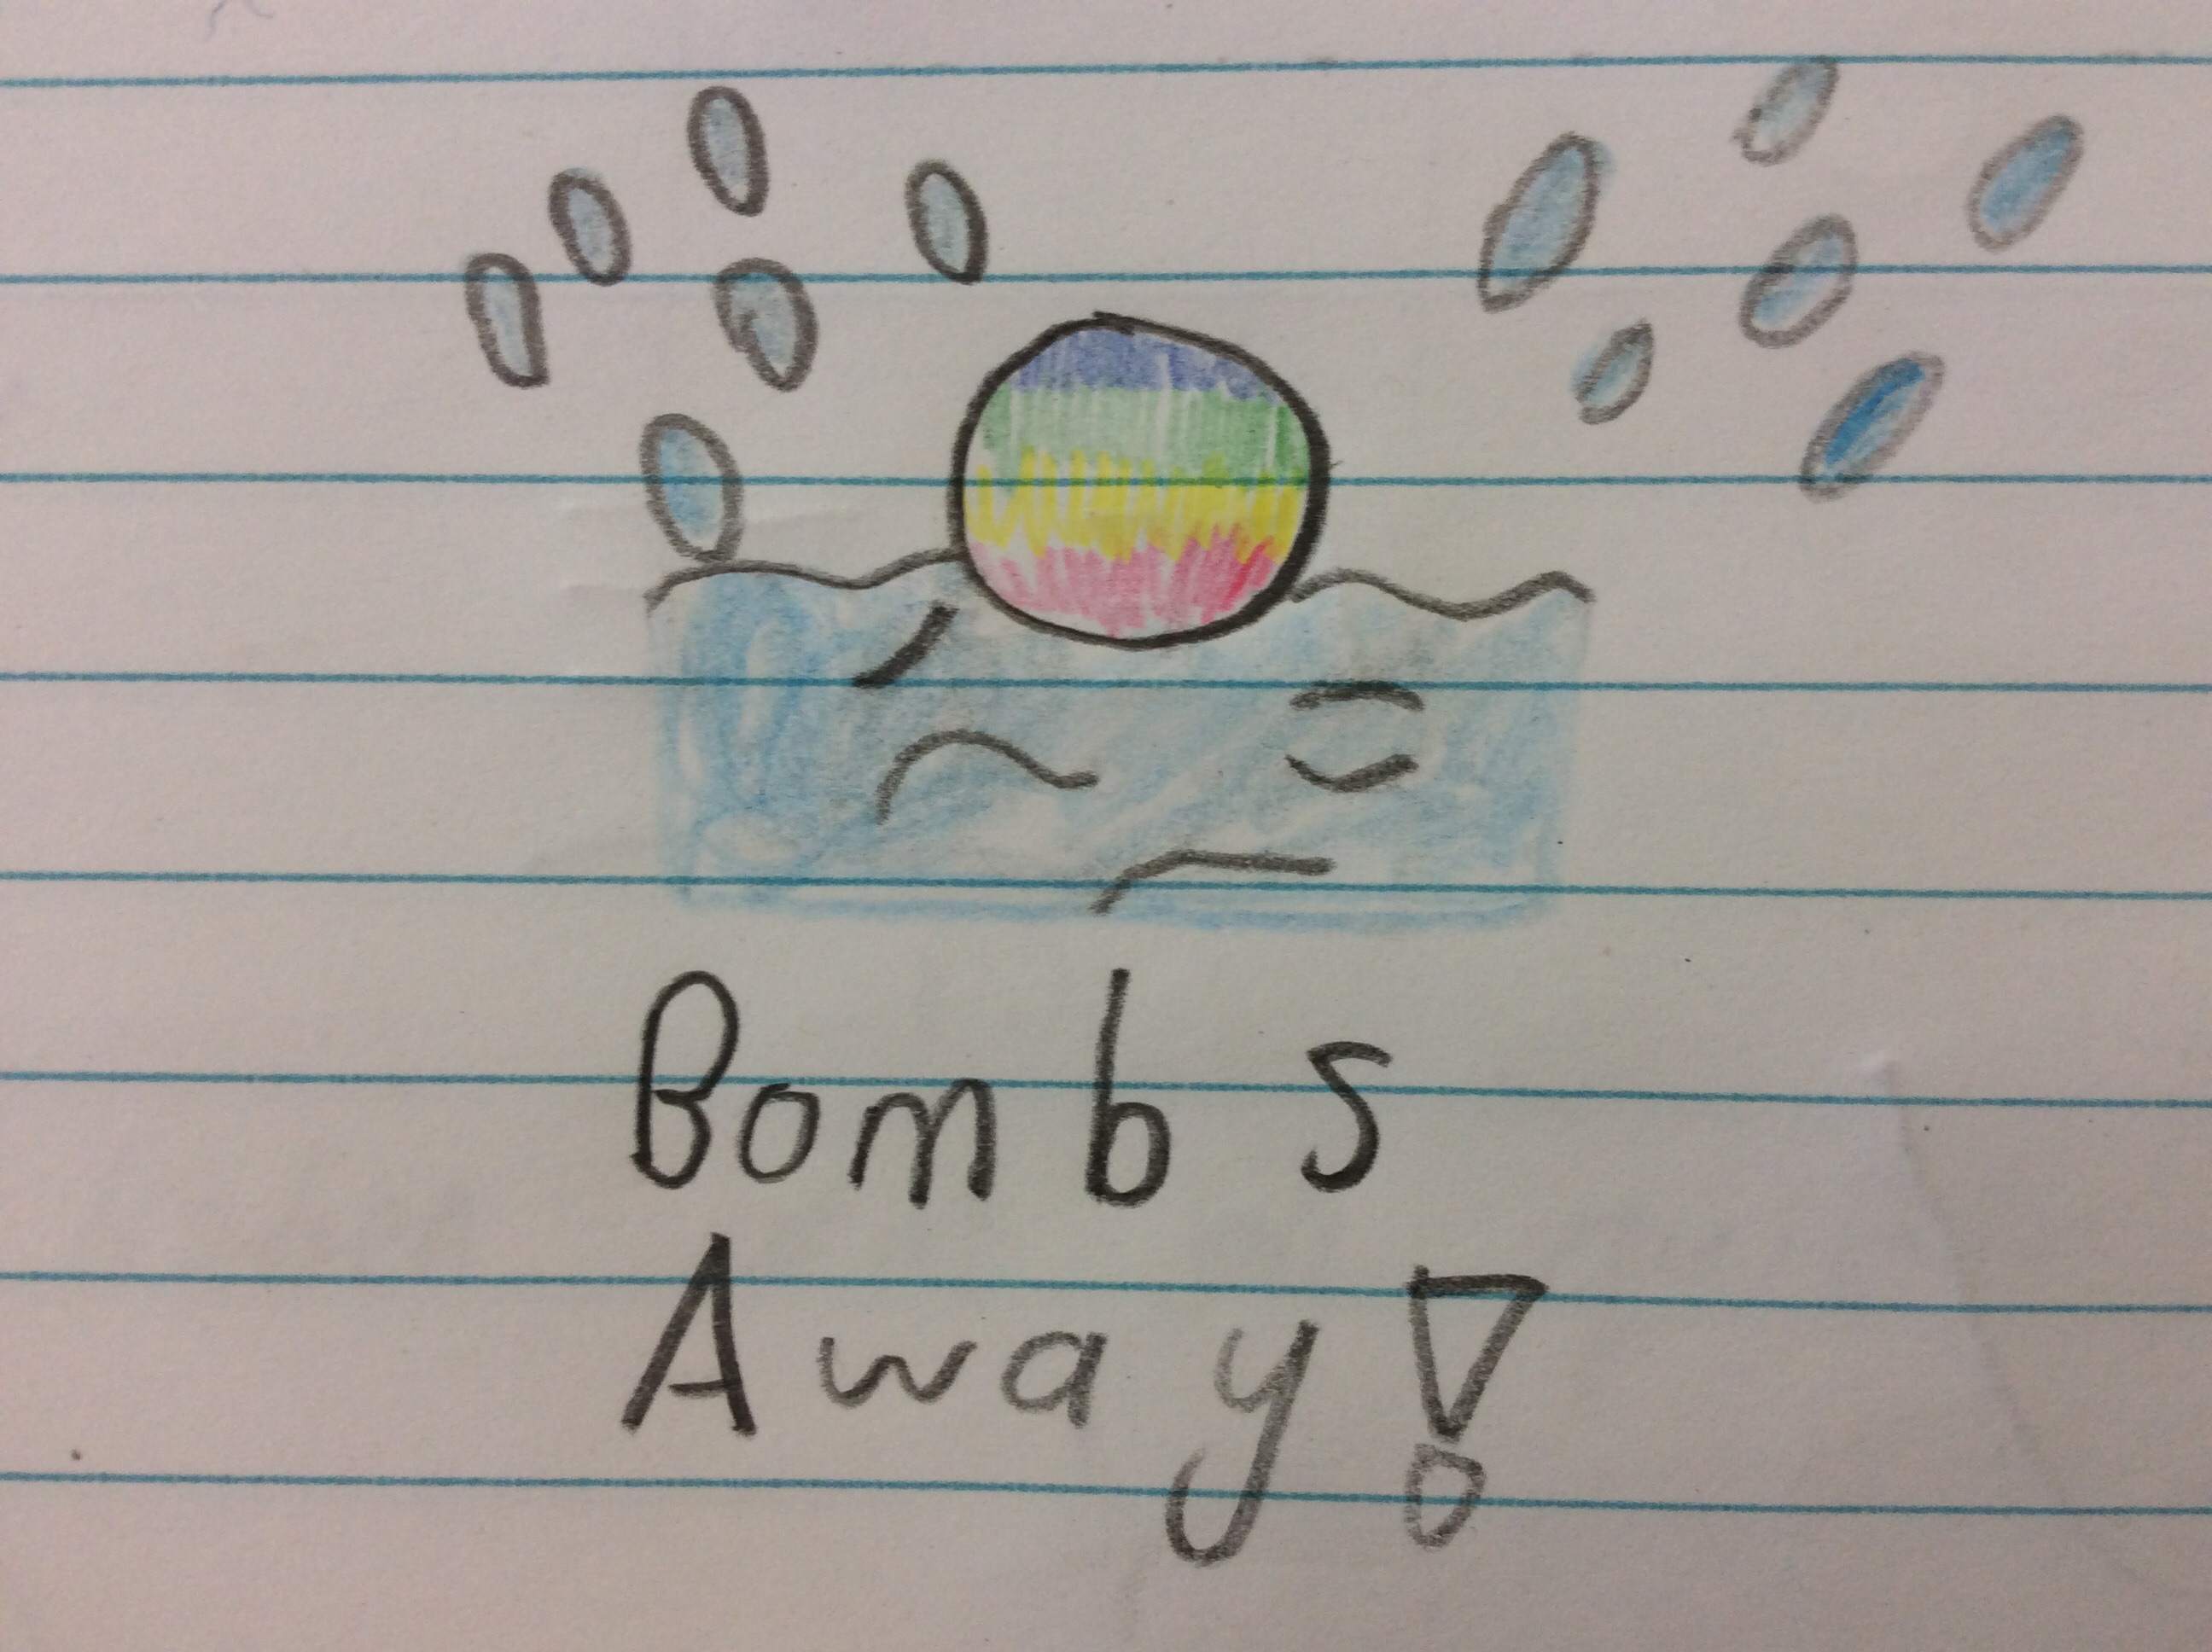 Bombs
Away!